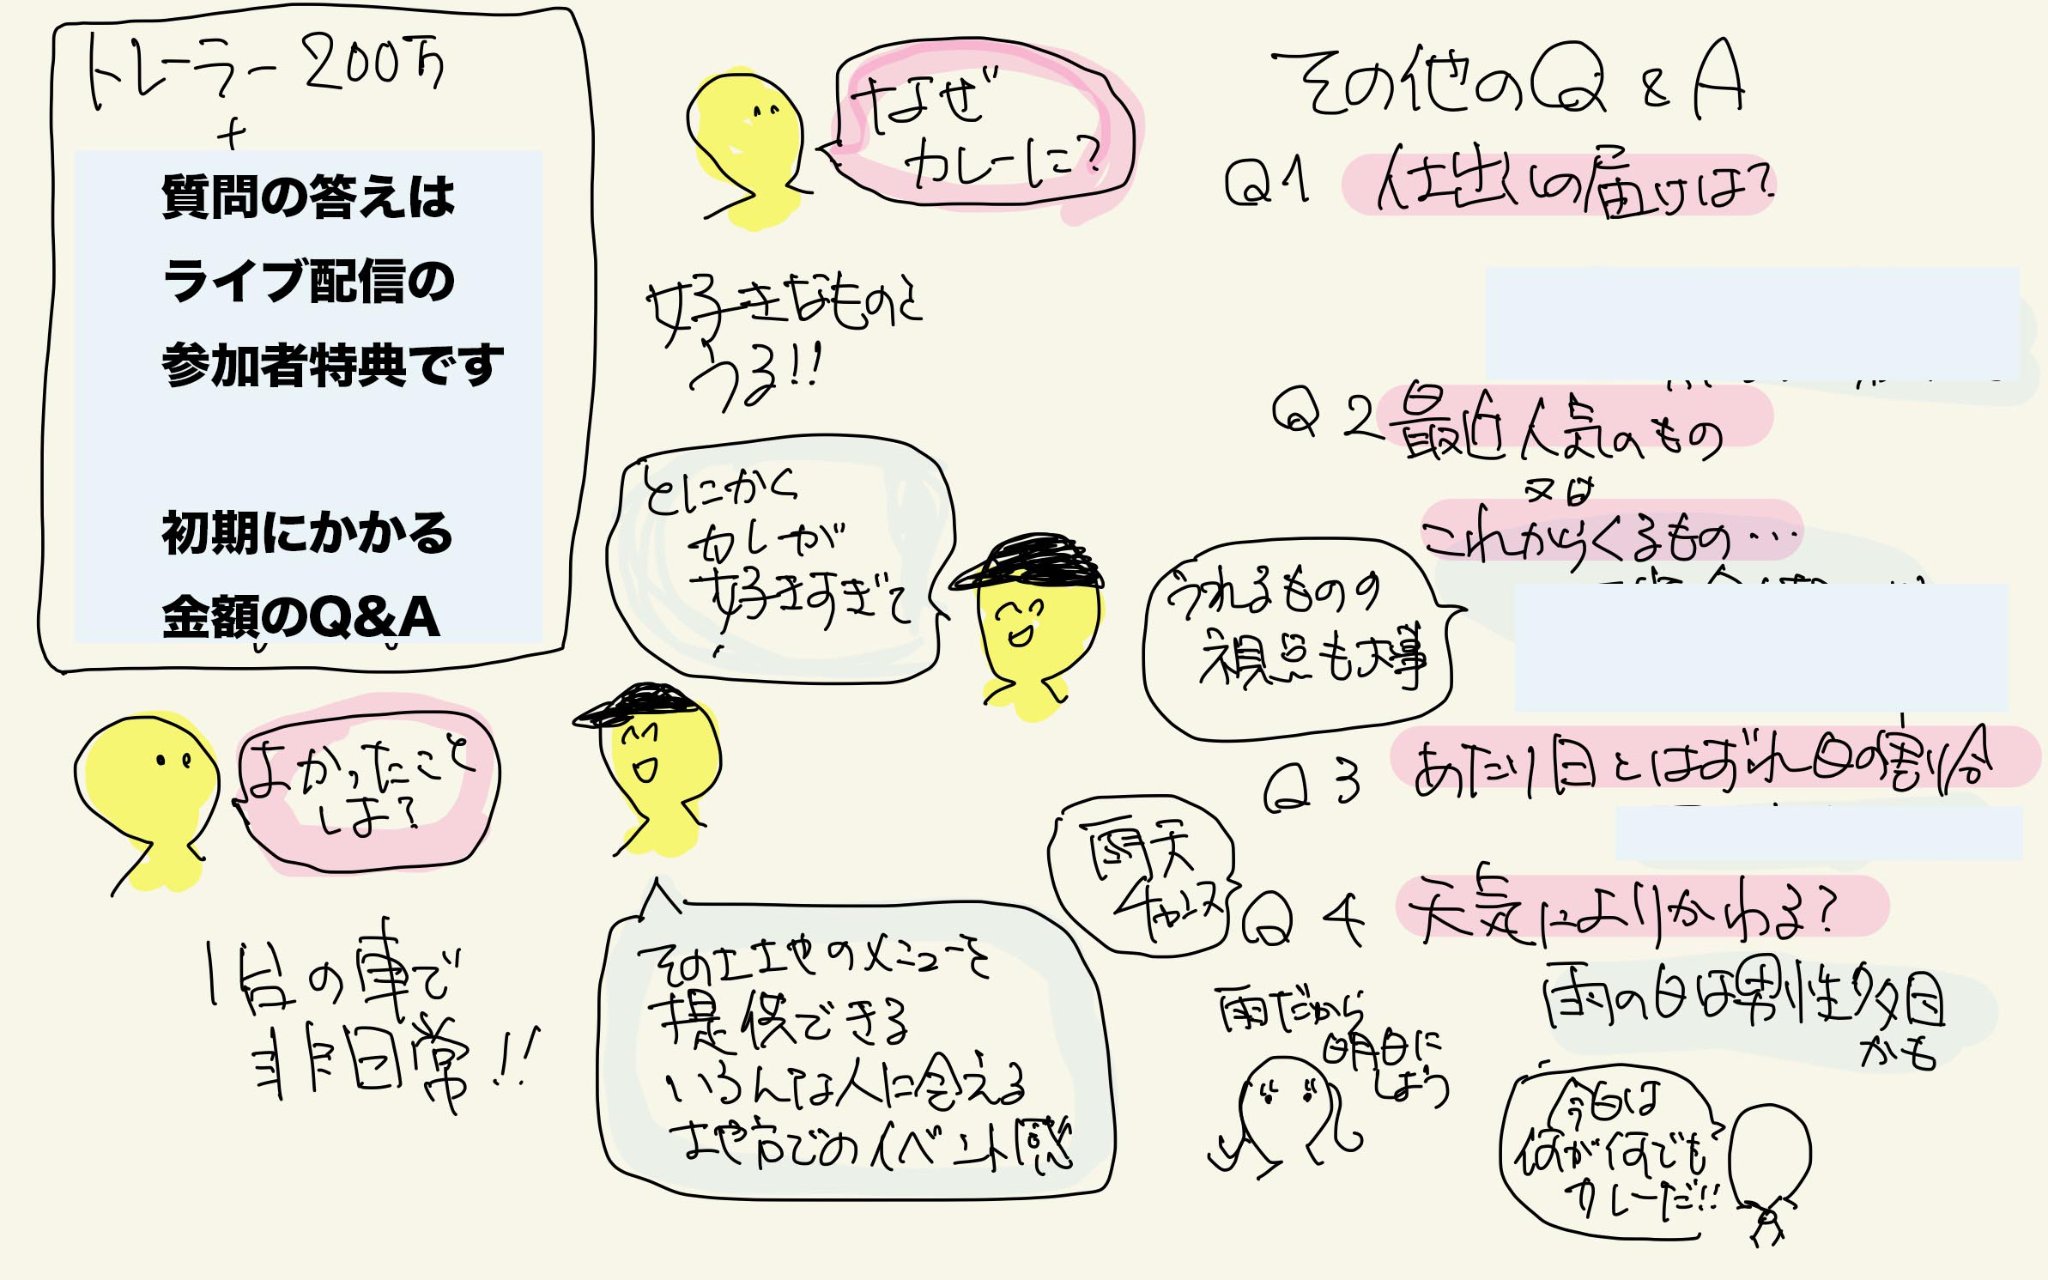 トレーラー200万
+
質問の答えは
ライブ配信の
参加者特典です
初期にかかる
金額のQ&A
よかったこと
しは?
1台の車で
非日常!!
なぜ
カレーに?
好きなものと
うる!!
とにかく
カレーが
好きすぎて
その土地のメニューを
提供できる
いろんな人に会える
地方でのイベント感
その他のQ&A
Q1 仕出しの届けは?
Q2 最近人気のもの
又は
これからくるもの…
うれるものの
視点も大事
Q3 あたり日とはずれ日の割合
雨天
チャンス
Q4 天気によりかわる?
雨の日は男性多目
かも
雨だから
明日に
しよう
今日は
何が何でも
カレーだ!!